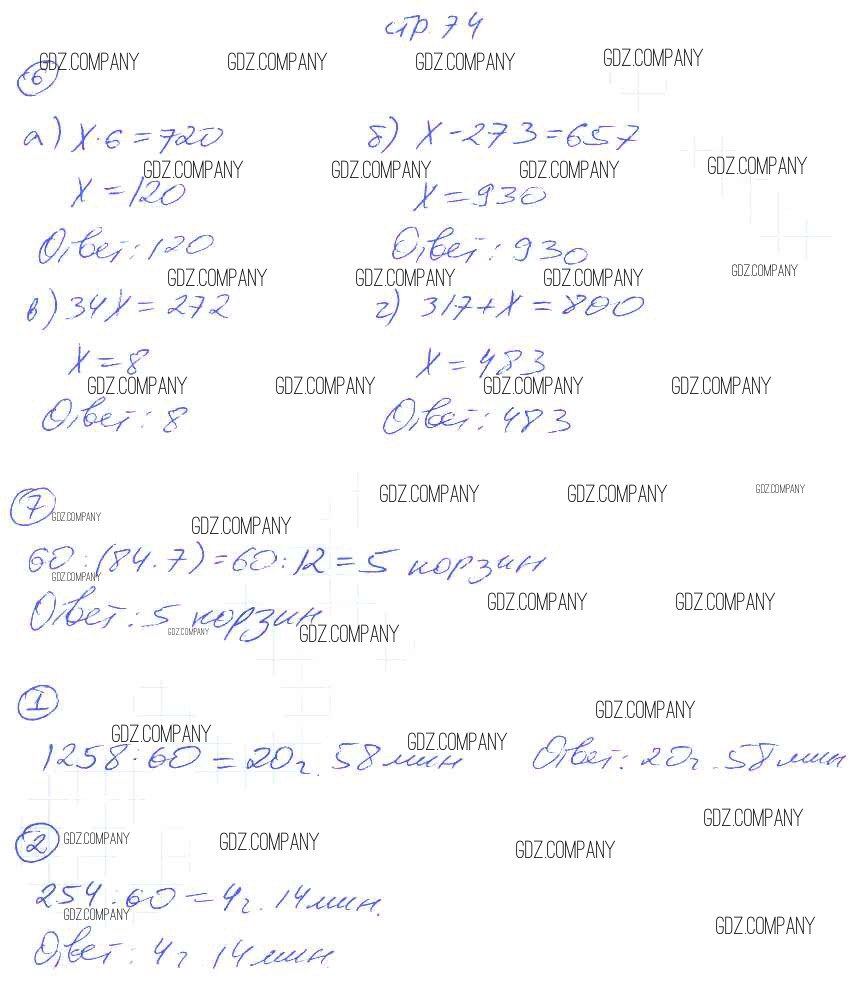 стр 74
GDZ.COMPANY GDZ.COMPANY GDZ.COMPANY GDZ.COMPANY
6
а) x·6=720 б) x-273=657
GDZ.COMPANY GDZ.COMPANY GDZ.COMPANY GDZ.COMPANY
x=120 x=930
Ответ: 120 Ответ: 930
GDZ.COMPANY GDZ.COMPANY GDZ.COMPANY GDZ.COMPANY
в) 34x=272 г) 317+x=800
x=8 x=483
GDZ.COMPANY GDZ.COMPANY GDZ.COMPANY GDZ.COMPANY
Ответ: 8 Ответ: 483
GDZ.COMPANY GDZ.COMPANY GDZ.COMPANY
7
GDZ.COMPANY GDZ.COMPANY
60:(84:7)=60:12=5 корзин
GDZ.COMPANY
GDZ.COMPANY GDZ.COMPANY
Ответ: 5 корзин
GDZ.COMPANY GDZ.COMPANY
1
GDZ.COMPANY
GDZ.COMPANY GDZ.COMPANY
1258:60=20г. 58мин Ответ: 20г. 58мин
GDZ.COMPANY
2
GDZ.COMPANY GDZ.COMPANY GDZ.COMPANY
254:60=4г. 14мин.
GDZ.COMPANY GDZ.COMPANY
Ответ: 4г 14мин.